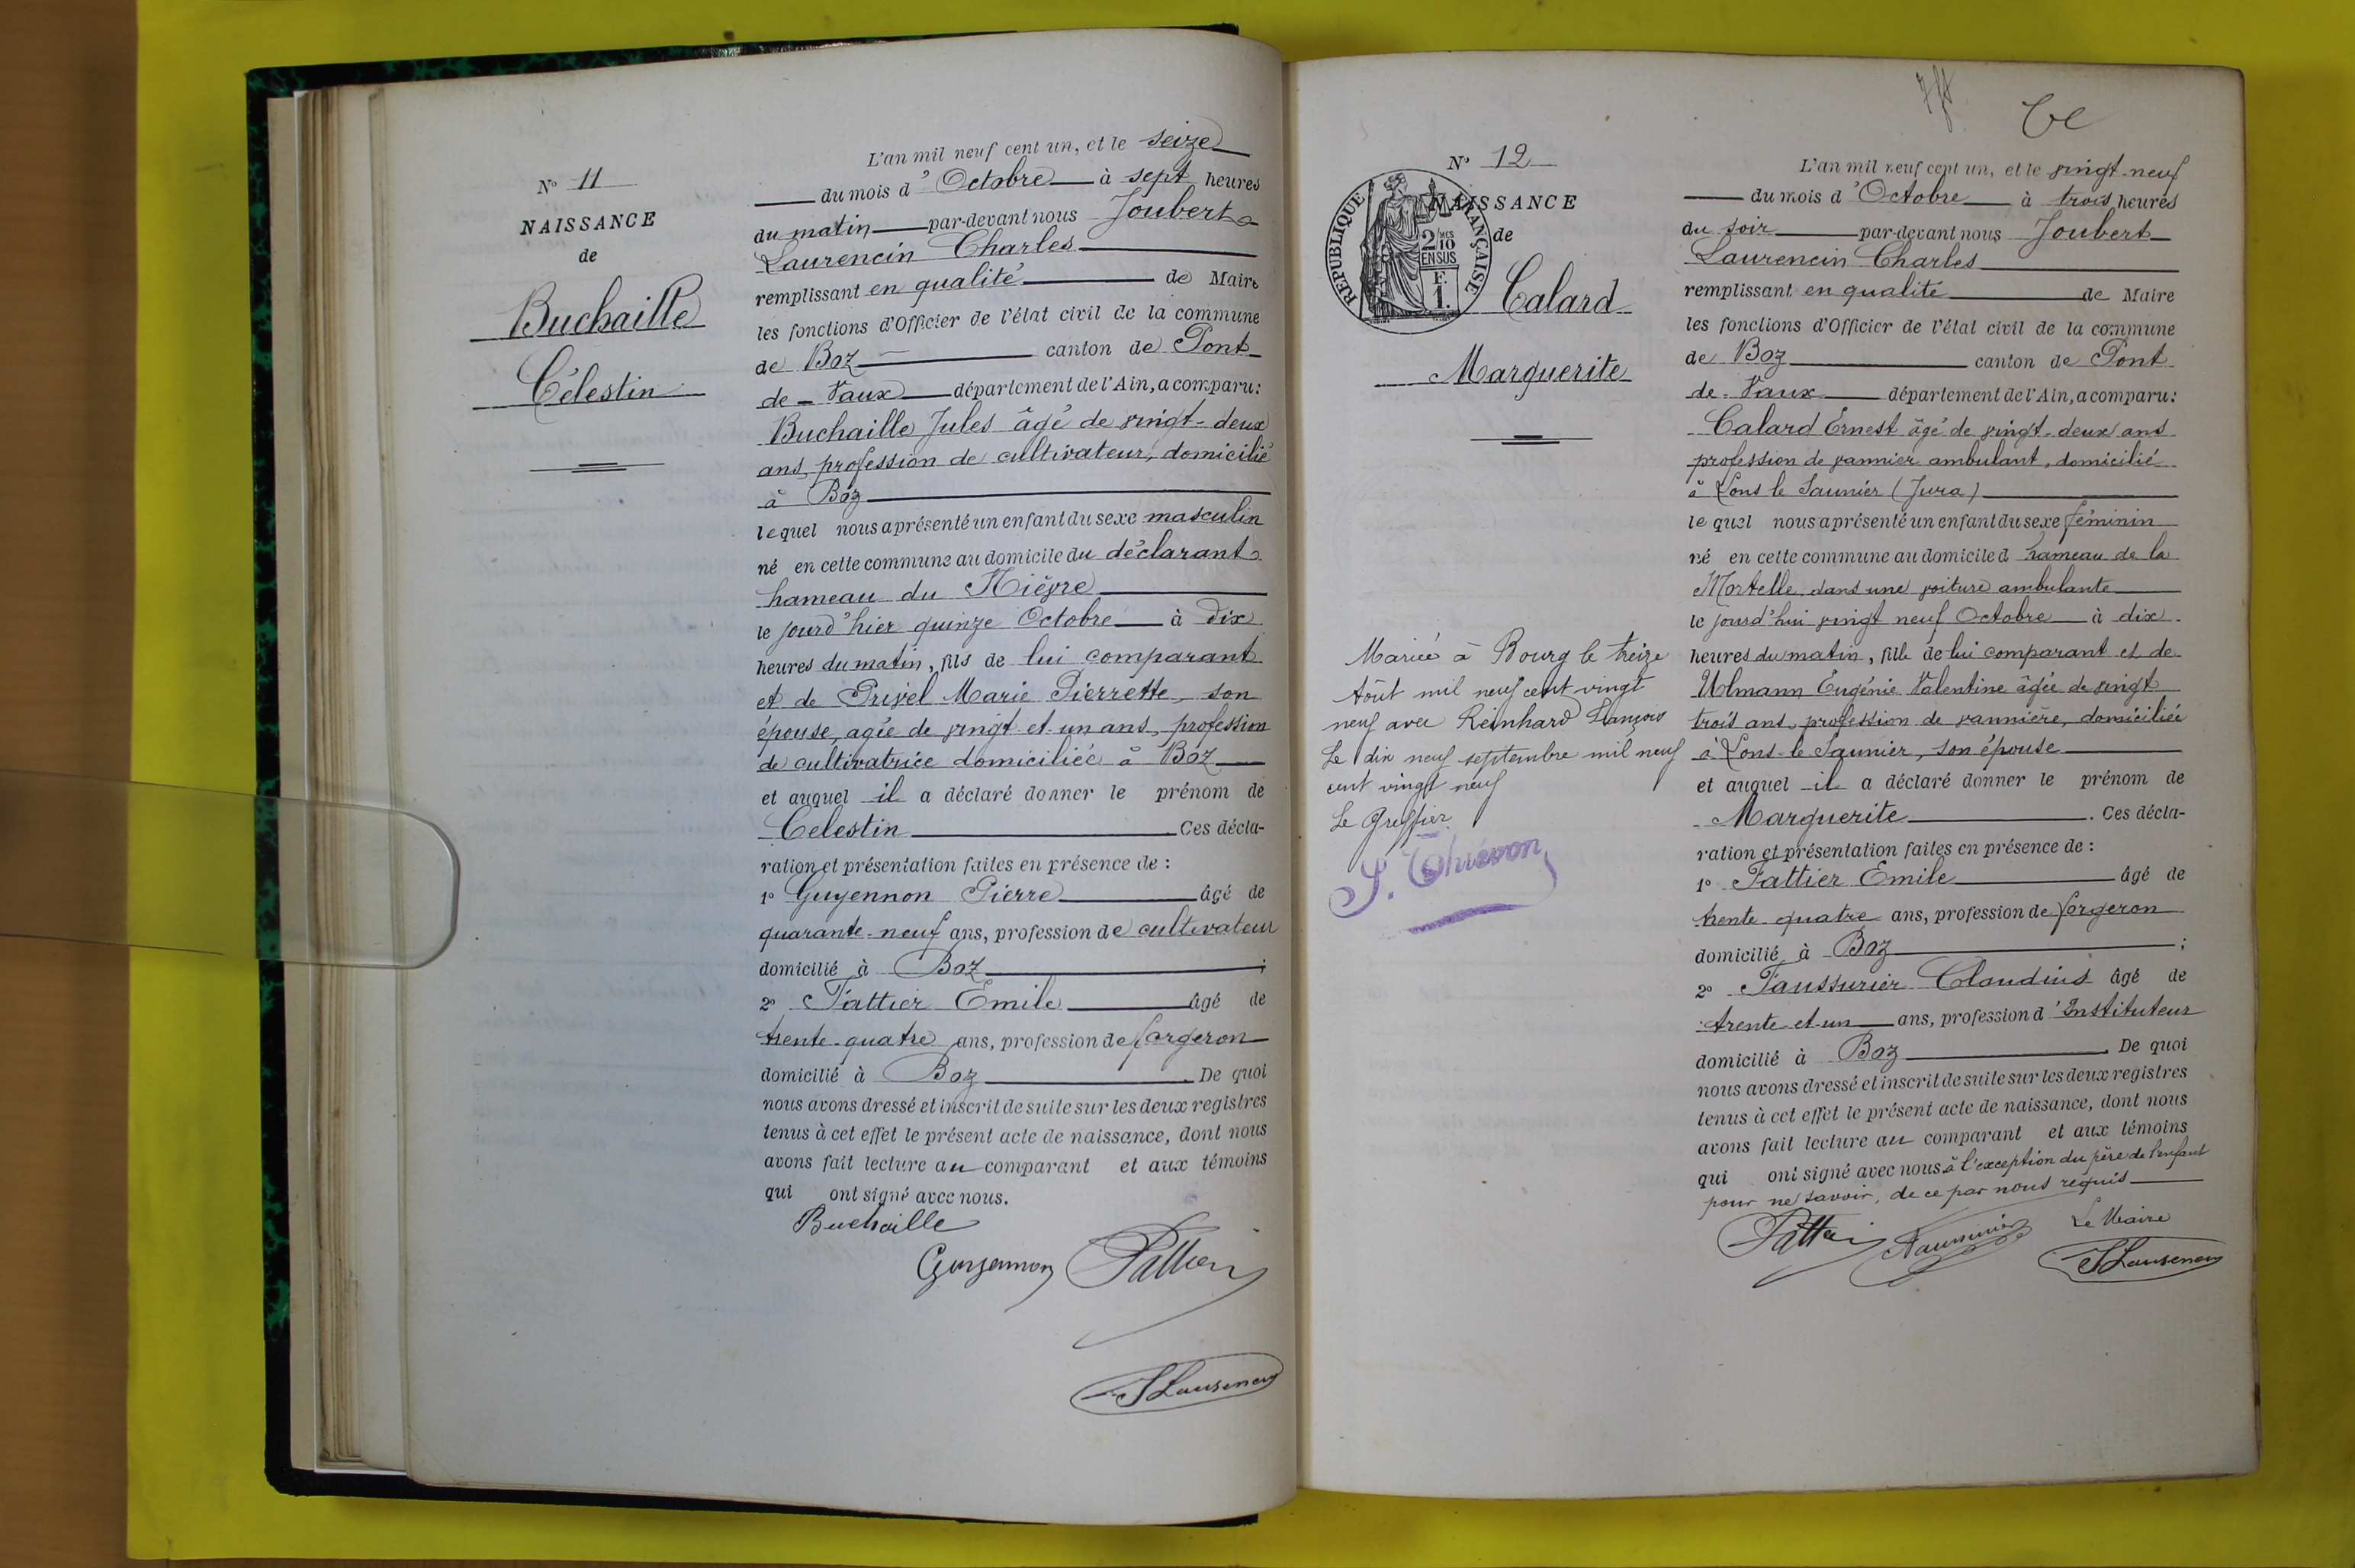 N° 11
NAISSANCE
de
Buchaille
Célestin
L'an mil neuf cent un, et le seize
du mois d'Octobre à sept heures
du matin par-devant nous Joubert
Laurencin Charles
remplissant en qualité de Maire
les fonctions d'Officier de l'état civil de la commune
de Boz canton de Pont-
de-Vaux département de l'Ain, a comparu:
Buchaille Jules âgé de vingt-deux
ans, profession de cultivateur, domicilié
à Boz
lequel nous a présenté un enfant du sexe masculin
né en cette commune au domicile du déclarant
hameau du
le jourd'hier quinze Octobre à dix
heures du matin, fils de lui comparant
et de Privel Marie Pierrette, son
épouse, agée de vingt et un ans, profession
de cultivatrice domiciliée à Boz
et auquel il a déclaré donner le prénom de
Celestin Ces décla-
ration et présentation faites en présence de :
1° Guyennon Pierre âgé de
quarante-neuf ans, profession de cultivateur
domicilié à Boz ;
2° Pattier Emile âgé de
trente-quatre ans, profession de forgeron
domicilié à Boz. De quoi
nous avons dressé et inscrit de suite sur les deux registres
tenus à cet effet le présent acte de naissance, dont nous
avons fait lecture au comparant et aux témoins
qui ont signé avec nous.
Buchaille
Guyennon Pattier
N° 12
NAISSANCE
de
RÉPUBLIQUE FRANÇAISE
2/10 MES
EN SUS
F.
1.
Calard
Marguerite
Mariée à Bourg le treize
Août mil neuf cent vingt
neuf avec Reinhard François
Le dix neuf septembre mil neuf
cent vingt neuf
Le Greffier
L'an mil neuf cent un, et le vingt-neuf
du mois d'Octobre à trois heures
du soir par-devant nous Joubert
Laurencin Charles
remplissant en qualité de Maire
les fonctions d'Officier de l'état civil de la commune
de Boz canton de Pont
de-Vaux département de l'Ain, a comparu:
Calard Ernest âgé de vingt-deux ans
profession de vannier ambulant, domicilié
à Lons le Saunier (Jura)
lequel nous a présenté un enfant du sexe féminin
né en cette commune au domicile d hameau de la
Mortelle, dans une voiture ambulante
le jourd'hui vingt neuf Octobre à dix
heures du matin, fille de lui comparant et de
Ulmann Eugénie Valentine âgée de vingt
trois ans, profession de vannière, domiciliée
à Lons-le-Saunier, son épouse
et auquel il a déclaré donner le prénom de
Marguerite. Ces décla-
ration et présentation faites en présence de :
1° Pattier Emile âgé de
trente quatre ans, profession de forgeron
domicilié à Boz ;
2° Faussurier Claudius âgé de
trente-et-un ans, profession d'Instituteur
domicilié à Boz. De quoi
nous avons dressé et inscrit de suite sur les deux registres
tenus à cet effet le présent acte de naissance, dont nous
avons fait lecture au comparant et aux témoins
qui ont signé avec nous à l'exception du père de l'enfant
pour ne savoir, de ce par nous requis
Le Maire